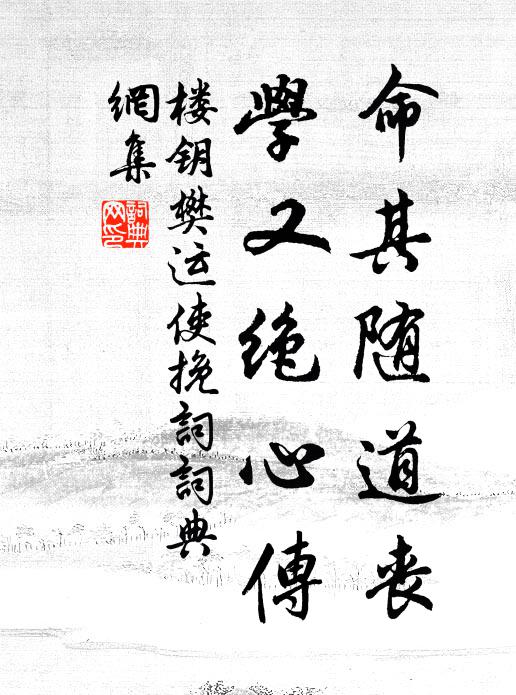 命其随道丧
學又絶心傳
楼钥樊运使挽詞詞典
網集
詞典網印